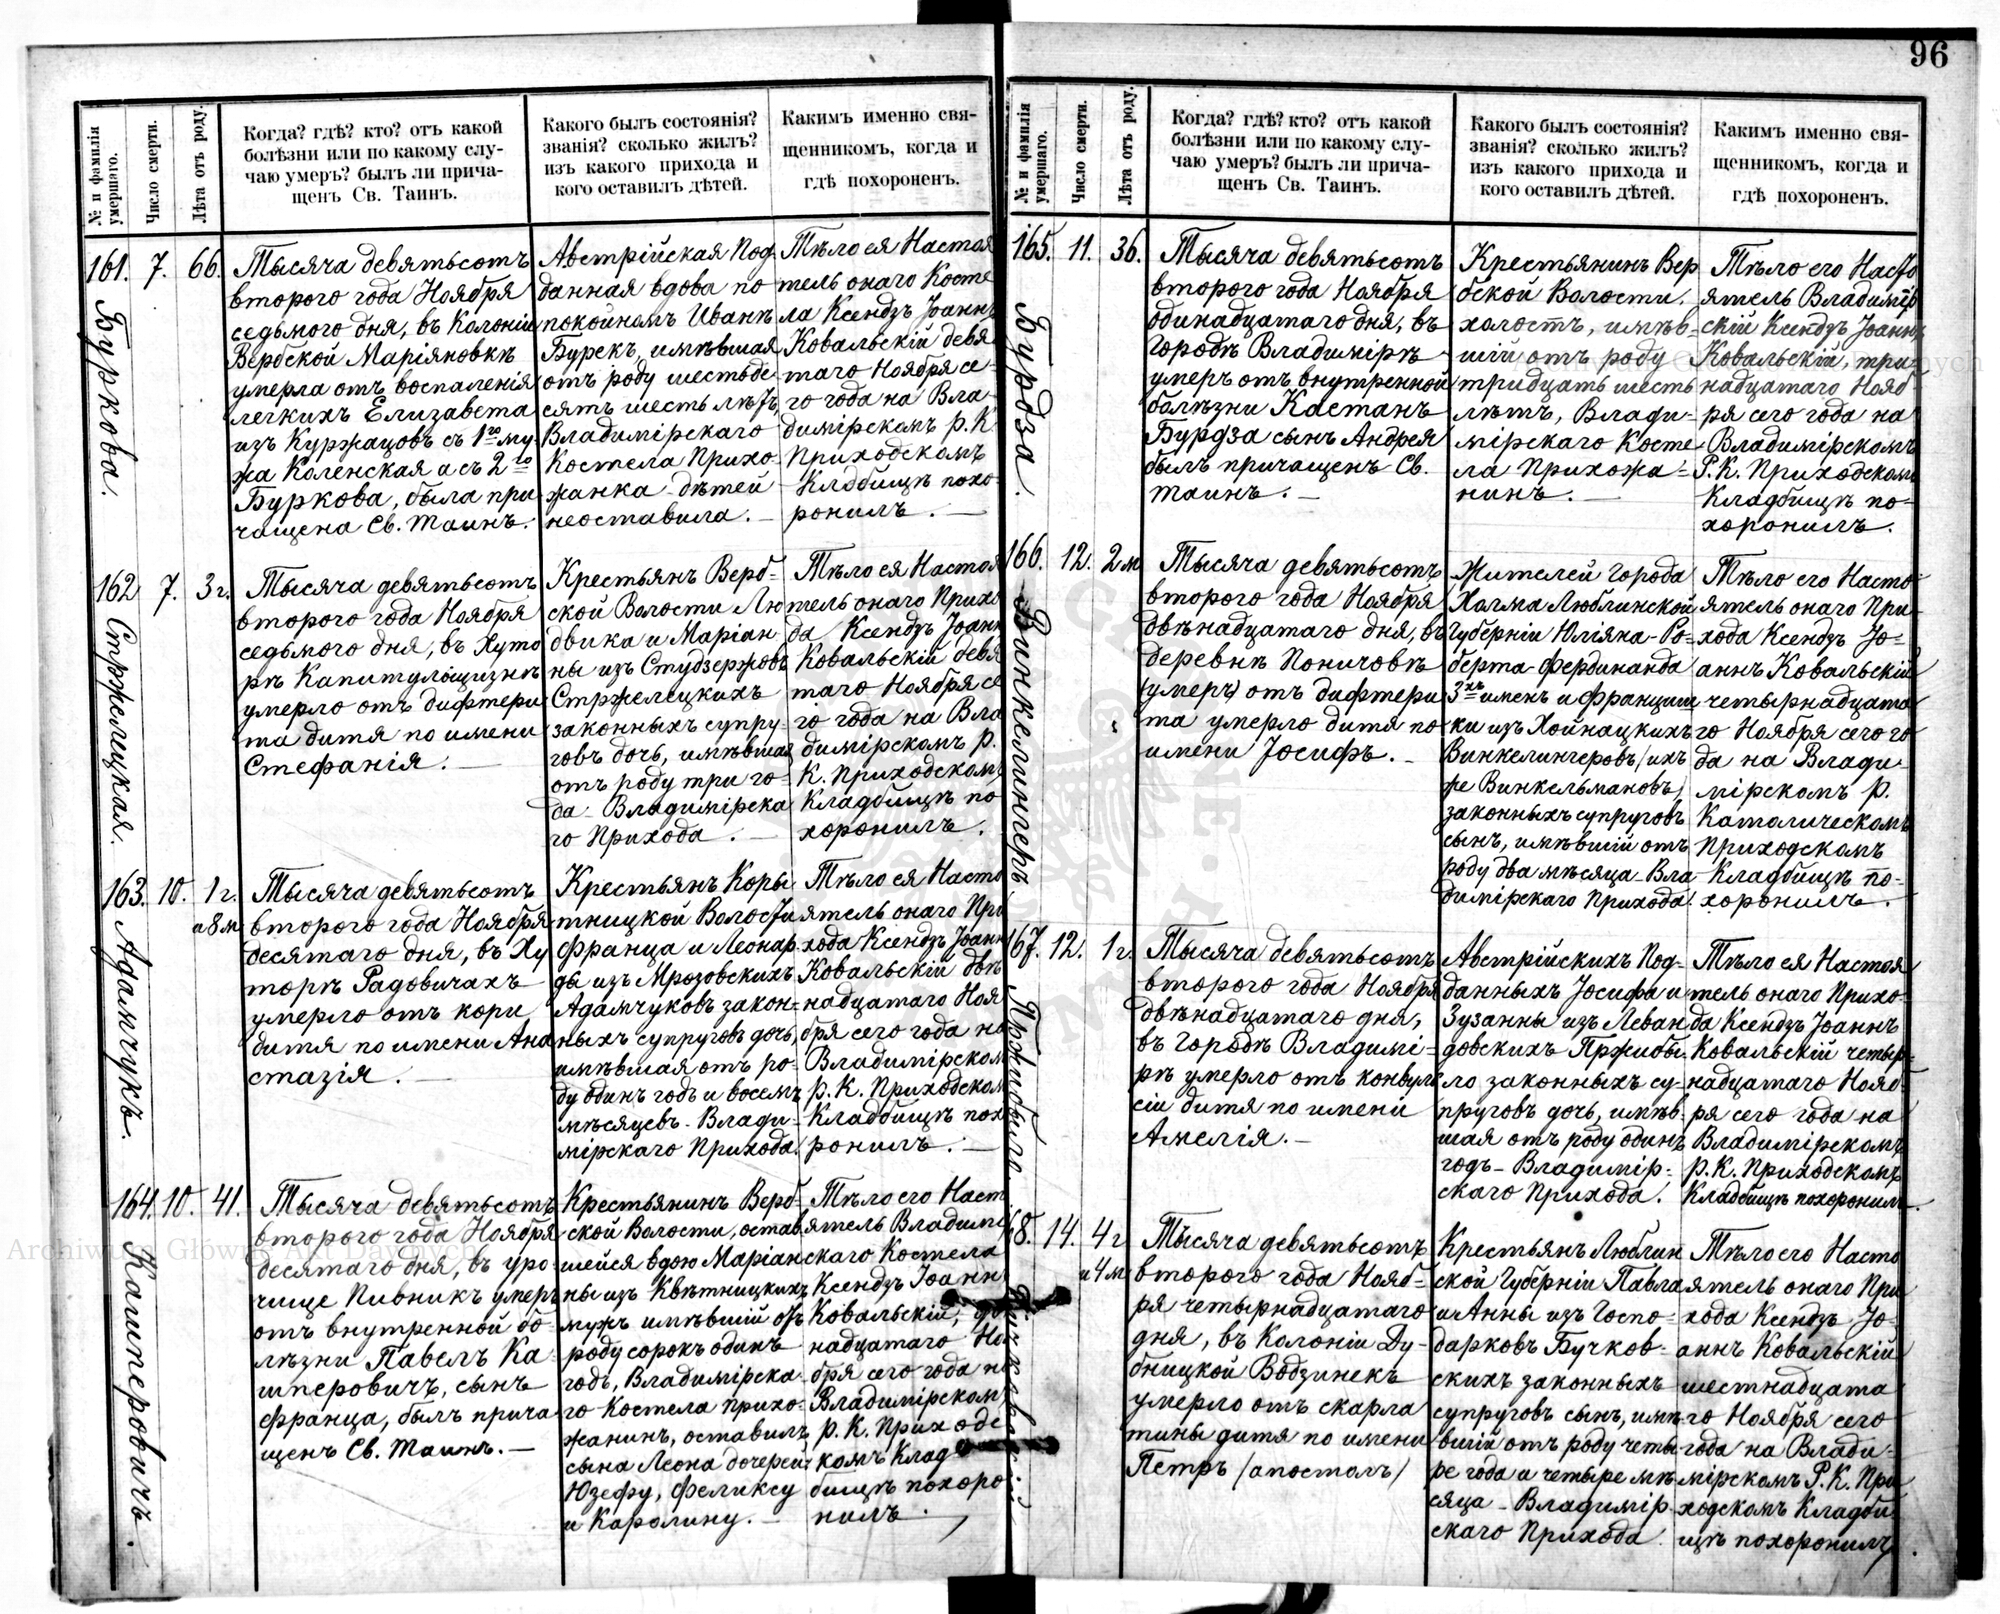 96
№ и фамилія умершаго.
Число смерти.
Лѣта отъ роду.
Когда? гдѣ? кто? отъ какой
болѣзни или по какому слу-
чаю умеръ? былъ ли прича-
щенъ Св. Таинъ.
Какого былъ состоянія?
званія? сколько жилъ?
изъ какого прихода и
кого оставилъ дѣтей.
Какимъ именно свя-
щенникомъ, когда и
гдѣ похороненъ.
161. 7. 66.
Буркова.
Тысяча девятьсотъ
второго года Ноября
седьмого дня, въ Колоніи
Вербской Маріяновкѣ
умерла отъ воспаленія
легкихъ Елизавета
изъ Куржацовъ съ 1го му-
жа Коленская а съ 2го
Буркова, была при
чащена Св. Таинъ.
Австрійская Под
данная вдова по
покойномъ Иванѣ
Бурекъ, имѣвшая
отъ роду шестьде
сятъ шесть лѣтъ,
Владимірскаго
Костела Прихо-
жанка дѣтей
неоставила.
Тѣло ея Настоя
тель онаго Косте
ла Ксендзъ Іоаннъ
Ковальскій девя
таго Ноября се-
го года на Вла-
димірскомъ р. К
Приходскомъ
Кладбищѣ похо-
ронилъ.
162 7. 3 г.
Стржелецкая.
Тысяча девятьсотъ
второго года Ноября
седьмого дня, въ Хуто
рѣ Капитульщизнѣ
умерло отъ дифтери
та дитя по имени
Стефанія.
Крестьянъ Верб-
ской Волости Лю
двика и Маріан
ны изъ Студзержовъ
Стржелецкихъ
законныхъ супру-
говъ дочь, имѣвшая
отъ роду три го-
да Владимірска
го Прихода.
Тѣло ея Настоя
тель онаго Прихо
да Ксендзъ Іоанн
Ковальскій девя
таго Ноября се
го года на Вла
димірскомъ р.
К. Приходскомъ
Кладбищѣ по
хоронилъ.
163. 10. 1 г. и 8 м
Адамчукъ.
Тысяча девятьсотъ
второго года Ноября
десятаго дня, въ Ху
торѣ Радовичахъ
умерло отъ кори
дитя по имени Ана
стазія.
Крестьянъ Коры
тницкой Волости
Франца и Леонар
ды изъ Мрозовскихъ
Адамчуковъ закон-
ныхъ супруговъ дочь,
имѣвшая отъ ро-
ду одинъ годъ и восемь
мѣсяцевъ Влади-
мірскаго Прихода.
Тѣло ея Насто
ятель онаго При
хода Ксендзъ Іоанн
Ковальскій двѣ
надцатаго Ноя
бря сего года на
Владимірском
р. К. Приходском
Кладбищѣ пох
ронилъ.
164. 10. 41.
Кашперовичъ.
Тысяча девятьсотъ
второго года Ноября
десятаго дня, въ уро
чище Пивникъ умеръ
отъ внутренной бо
лѣзни Павелъ Ка
шперовичъ, сынъ
Франца, былъ прича
щенъ Св. Таинъ.
Крестьянинъ Верб
ской Волости, остав
шейся вдою Маріан
ны изъ Квѣтницкихъ
мужъ имѣвшій отъ
роду сорокъ одинъ
годъ, Владимірска
го Костела прихо-
жанинъ, оставилъ
сына Леона дочерей
Юзефу, Феликсу
и Каролину.
Тѣло его Наст
ятель Владимі
скаго Костела
Ксендзъ Іоанн
Ковальскій,
надцатаго Но
бря сего года н
Владимірском
р. К. Приходс
комъ Клад
бищѣ похоро
нилъ.
№ и фамилія умершаго.
Число смерти.
Лѣта отъ роду.
Когда? гдѣ? кто? отъ какой
болѣзни или по какому слу-
чаю умеръ? былъ ли прича-
щенъ Св. Таинъ.
Какого былъ состоянія?
званія? сколько жилъ?
изъ какого прихода и
кого оставилъ дѣтей.
Какимъ именно свя-
щенникомъ, когда и
гдѣ похороненъ.
165. 11. 36.
Бурдза.
Тысяча девятьсотъ
второго года Ноября
одинадцатаго дня, въ
городѣ Владимірѣ
умеръ отъ внутренной
болѣзни Каетанъ
Бурдза сынъ Андрея
былъ причащенъ Св.
Таинъ.
Крестьянинъ Вер
бской Волости.
холостъ, имѣв-
шій отъ роду
тридцать шесть
лѣтъ, Влади-
мірскаго Косте
ла Прихожа-
нинъ.
Тѣло его Насто
ятель Владимір
скій Ксендзъ Іоаннъ
Ковальскій, три-
надцатаго Нояб
ря сего года на
Владимірскомъ
Р. К. Приходскомъ
Кладбищѣ по-
хоронилъ.
166. 12. 2 м
Винкелингеръ
Тысяча девятьсотъ
второго года Ноября
двѣнадцатаго дня, въ
деревнѣ Поничовѣ
(умеръ) отъ дифтери
та умерло дитя по
имени Іосифъ.
Жителей города
Холма Люблинской
Губерніи Юліяна-Ро-
берта-Фердинанда
3хъ именъ и Францишки
изъ Хойнацкихъ
Винкелингеровъ (ихъ
же Винкельмановъ)
законныхъ супруговъ
сынъ, имѣвшій отъ
роду два мѣсяца Вла-
димірскаго Прихода.
Тѣло его Насто
ятель онаго При-
хода Ксендзъ Іо-
аннъ Ковальскій
четырнадцата
го Ноября сего го
да на Влади-
мірскомъ р.
Католическомъ
Приходскомъ
Кладбищѣ по-
хоронилъ.
167. 12. 1 г.
Пржибыло.
Тысяча девятьсотъ
второго года Ноября
двѣнадцатаго дня,
въ городѣ Владимі-
рѣ умерло отъ конвуль
сіи дитя по имени
Амелія.
Австрійскихъ Под-
данныхъ Іосифа и
Зузанны изъ Леван
довскихъ Пржибы-
ло законныхъ су-
пруговъ дочь, имѣв-
шая отъ роду одинъ
годъ Владимір-
скаго Прихода.
Тѣло ея Настоя
тель онаго Прихо-
да Ксендзъ Іоаннъ
Ковальскій четыр-
надцатаго Нояб-
ря сего года на
Владимірскомъ
р. К. Приходскомъ
Кладбищѣ похоронилъ.
68. 14. 4 г и 4 м
Тысяча девятьсотъ
второго года Нояб-
ря четырнадцатаго
дня, въ Колоніи Ду-
бницкой Водзинекъ
умерло отъ скарла
тины дитя по имени
Петръ (апостолъ)
Крестьянъ Люблин
ской Губерніи Павла
и Анны изъ Госпо-
дарковъ Бучков-
скихъ законныхъ
супруговъ сынъ, имѣ-
вшій отъ роду четы
ре года и четыре мѣ
сяца Владимір
скаго Прихода.
Тѣло его Насто
ятель онаго При
хода Ксендзъ Іо-
аннъ Ковальскій
шестнадцата
го Ноября сего
года на Влади-
мірскомъ Р. К. При
ходскомъ Кладби
щѣ похоронилъ.